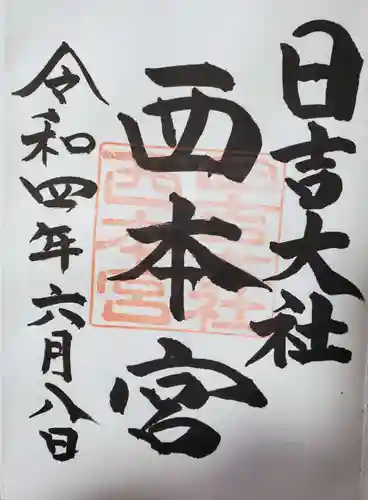 日吉大社
西本宮
令和四年六月八日